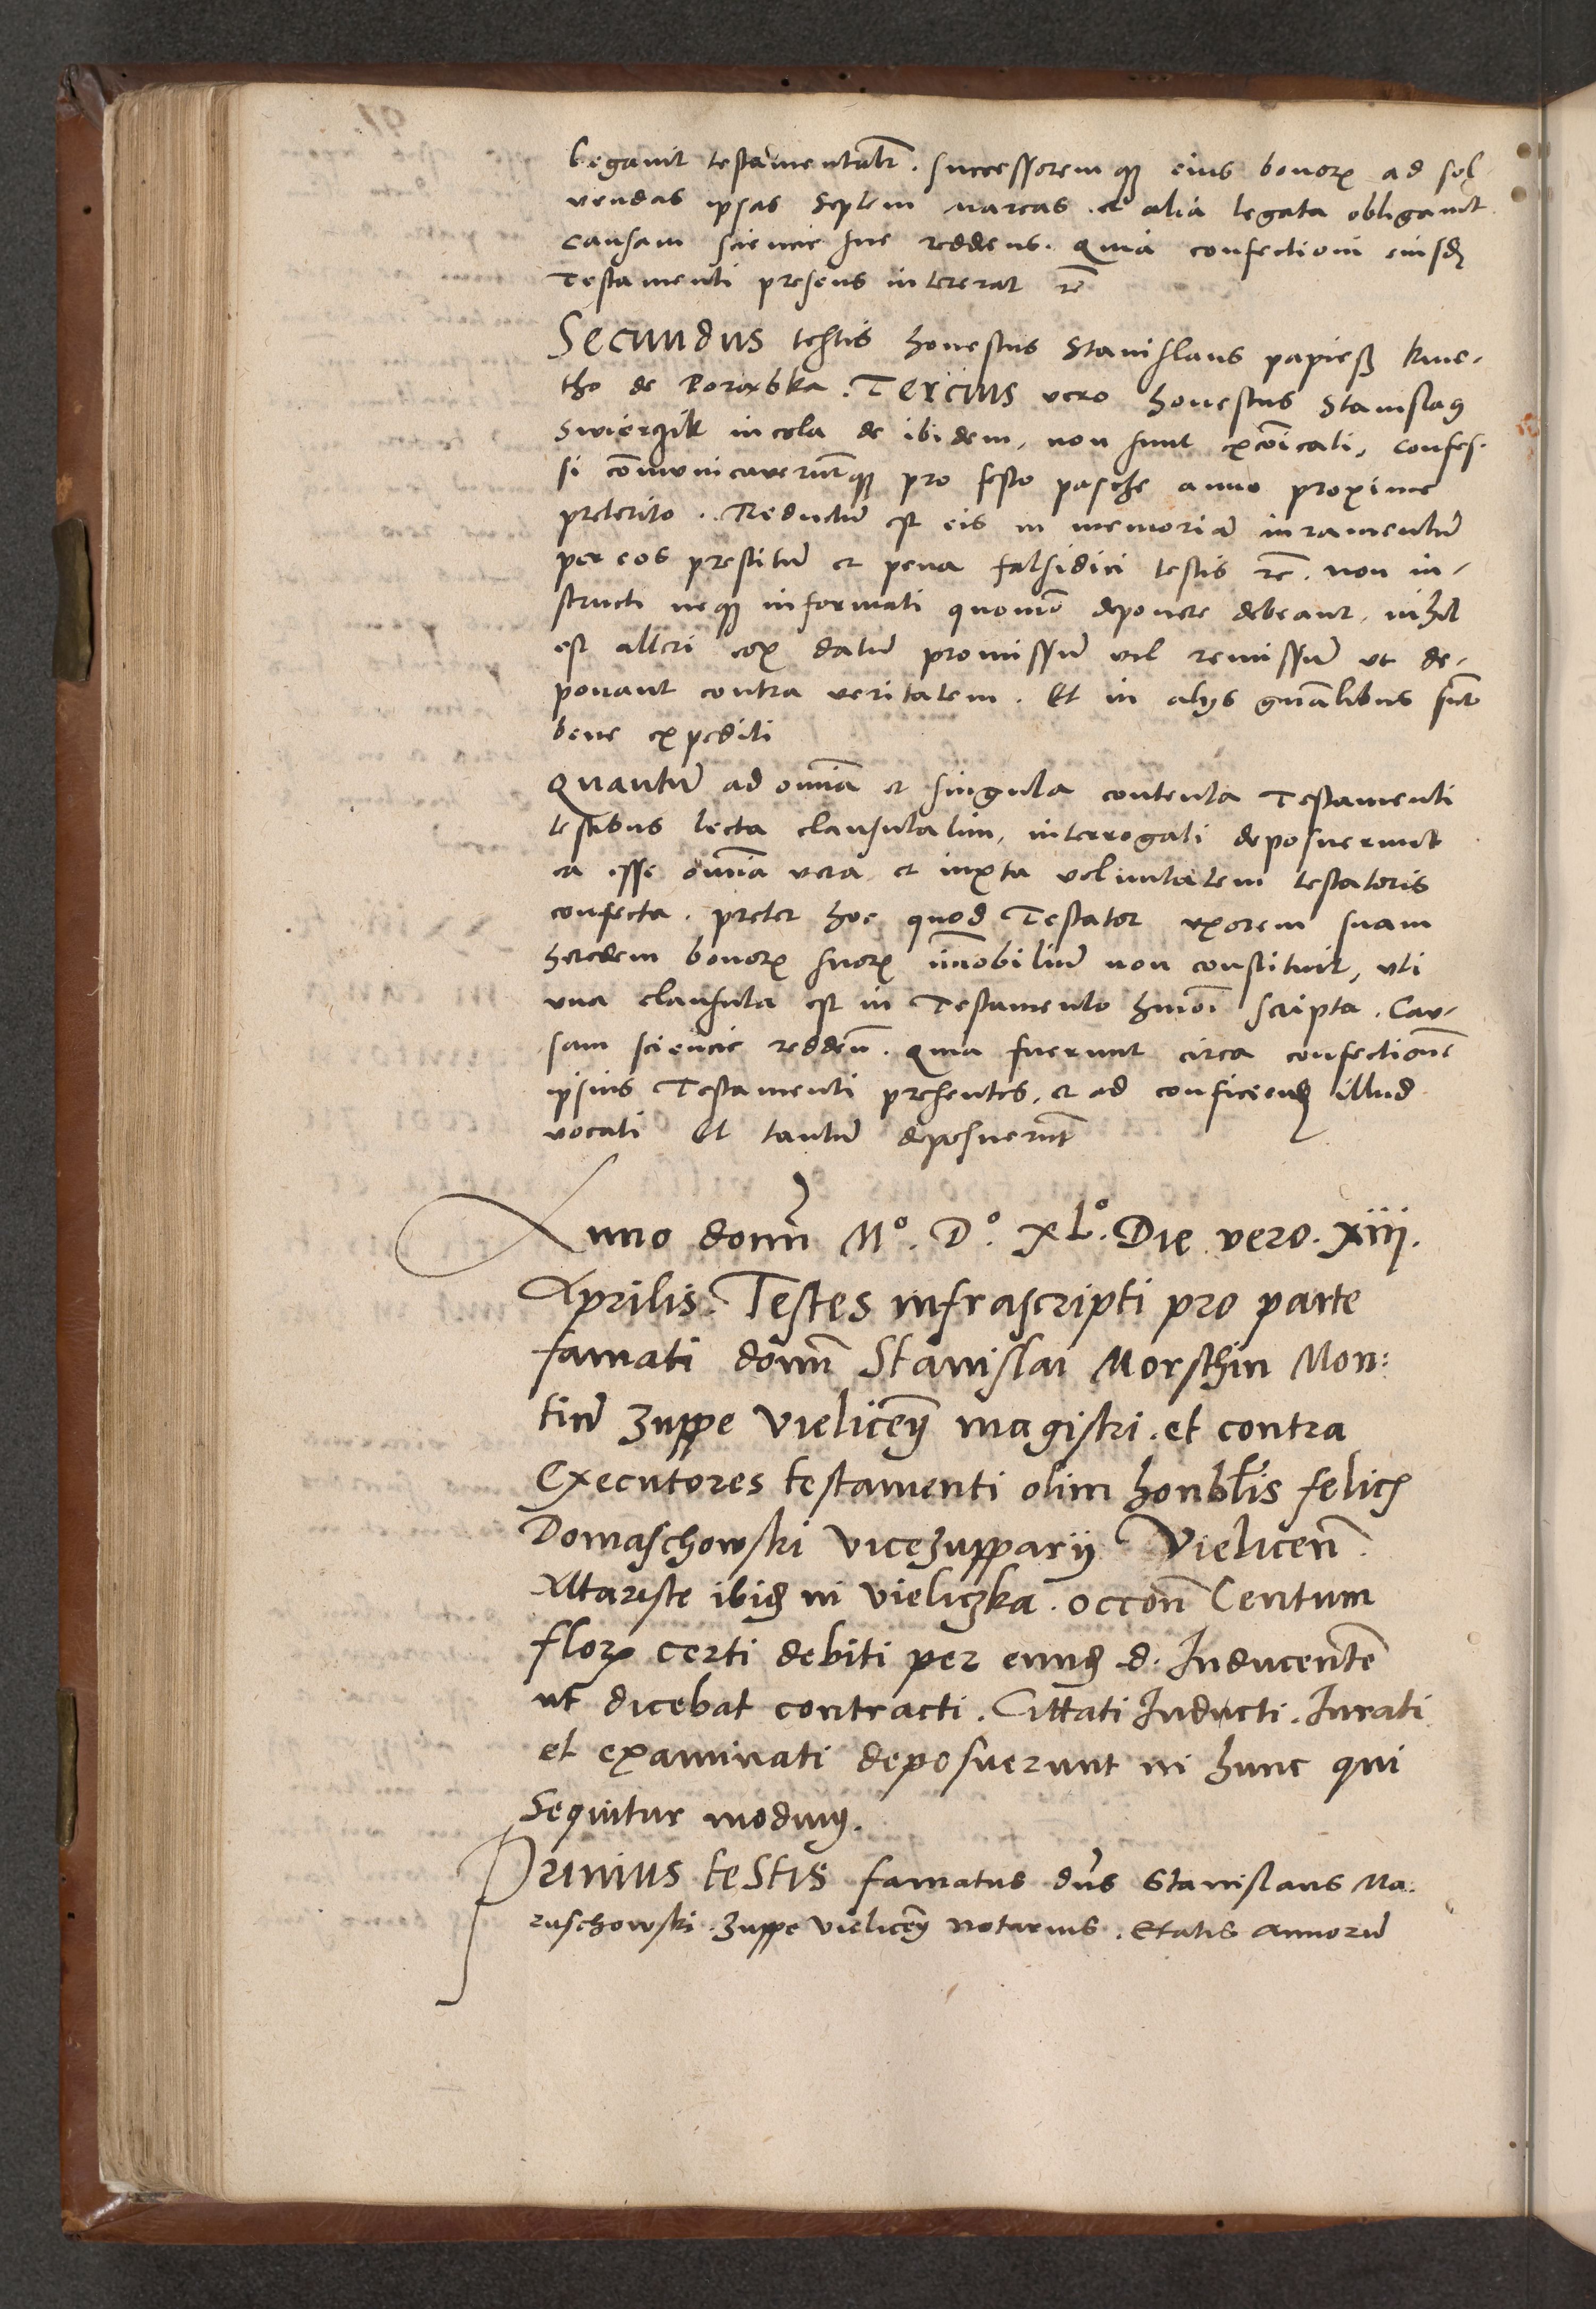 legavit testamentalr̃. successoremqȝ eius bonorꝝ ad sol-
vendas ipsas Septem marcas et alia legata obligavit
causam sciencie sue reddens. Quia confectioni eiusdꝫ
Testamenti presens intererat rc̃
Secundus testis honestus Stanislaus papiesz kme-
tho de Porąbka. Tercius vero honestus Stanislaꝯ
Swierczik incola de ibidem, non sunt excõicati, confes-
si cõmunicaveruntqȝ pro festo pasche anno proxime
preterito. Reductũ est eis in memoriã iuramentũ
per eos prestitũ et pena falsidici testis rc̃. non in-
structi neqȝ informati quomõ deponere debeant, nihil
est alteri eorꝝ datũ promissũ vel remissũ ut de-
ponant contra veritatem. Et in alijs gnãlibus sũt
bene expediti
Quantũ ad omĩa et singula contenta Testamenti
testibus lecta clausulatim, interrogati deposuerunt
ea esse omĩa vera et iuxta voluntatem testatoris
confecta. preter hoc quod Testator uxorem suam
heredem bonorꝝ suorꝝ im̃obiliũ non constituit, uti
una clausula est in Testamento hmõi scripta. Cau-
sam sciencie redden̄. quia fuerunt circa confectionẽ
ipsius Testamenti presentes, et ad conficiendꝫ illud
vocati Et tantũ deposuerũt
Anno domĩ Mº. Dº. XLº. Die vero. xiij.
Aprilis. Testes infrascripti pro parte
famati domĩ Stanislai Morschin Mon:
tiũ Zuppe Vielicẽn magistri. et contra
Executores testamenti olim honbl̃is felicis
Domaschowski vicezupparij Vielicen̄.
Altariste ibidꝫ in Vieliczka. occõn Centum
florꝝ certi debiti per eundꝫ d. Inducentẽ
ut dicebat contracti. Cittati Inducti. Iurati
et examinati deposuerunt in hunc qui
Sequitur modum.
Primus testis famatus dñs Stanislaus Ma:
ruschowski. Zuppe Vielicẽn notarius. Etatis annorũ